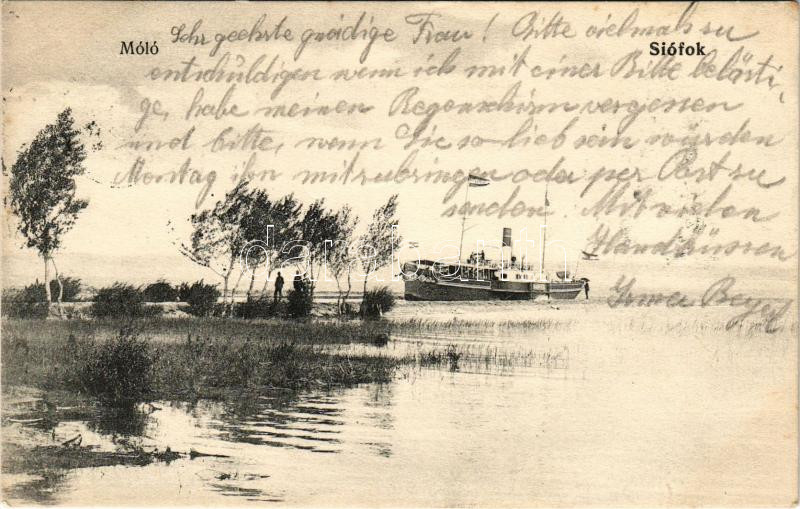 Móló
Siófok
Sehr geehrte gnädige Frau! Bitte vielmals zu
entschuldigen wenn ich mit einer Bitte belästi-
ge, habe meinen Regenschirm vergessen
und bitte, wenn Sie so lieb sein würden
Montag ihn mitzubringen oder per Post zu
senden. Mit vielen
Handküssen
Irma Beyer
darabanth